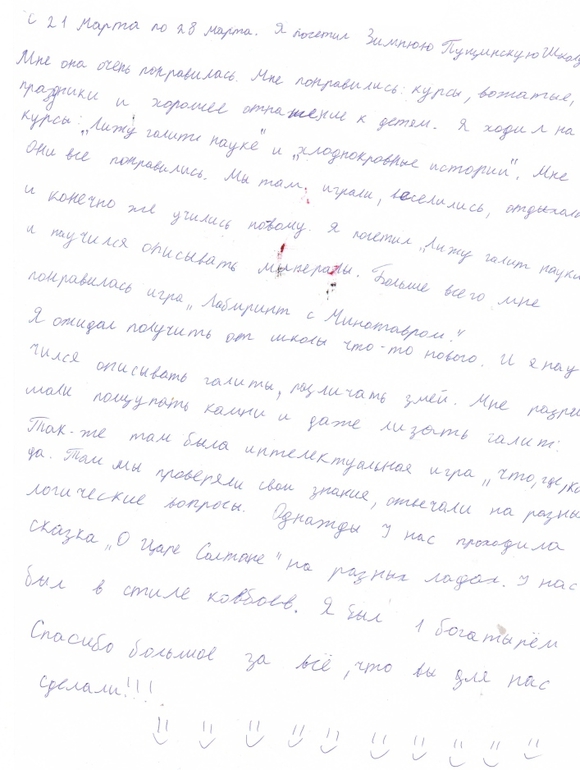 С 21 Марта по 28 марта. Я посетил Зимнюю Пущинскую Школу
Мне она очень понравилась. Мне понравились: курсы, вожатые,
праздники и хорошее отнашение к детям. Я ходил на
курсы: „Лижу галит: науке" и „хлоднокровные истории". Мне
Они все понравились. Мы там, играли, веселились, отдыхали
и конечно же учились новому. Я посетил „Лижу галит: науки
и научился описывать минералы. Больше всего мне
понравилась игра „Лабиринт с Минотавром."
Я ожидал получить от школы что-то нового. И я нау
чился описывать галиты, различать змей. Мне разре
мали пощупать камни и даже лизать галит:
Так-же там была интелектуальная игра „Что, где, ко
да. Там мы проверяли свои знание, отвечали на разны
логические вопросы. Однажды У нас проходила
сказка „О Царе Салтане" на разных ладах. У нас
был в стиле ковбоев. Я был 1 богатырём
Спасибо большое за всё, что вы для нас
сделали!!!